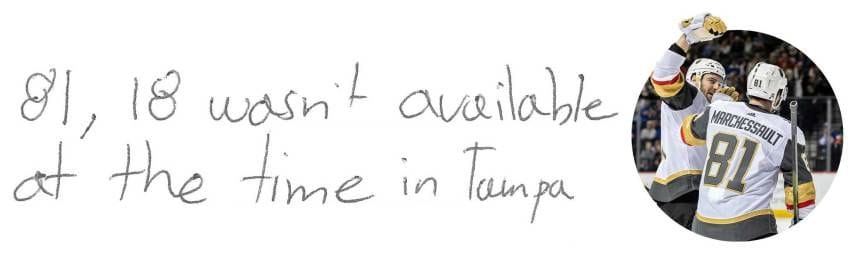 81, 18 wasn't available
at the time in Tampa
81
MARCHESSAULT
81